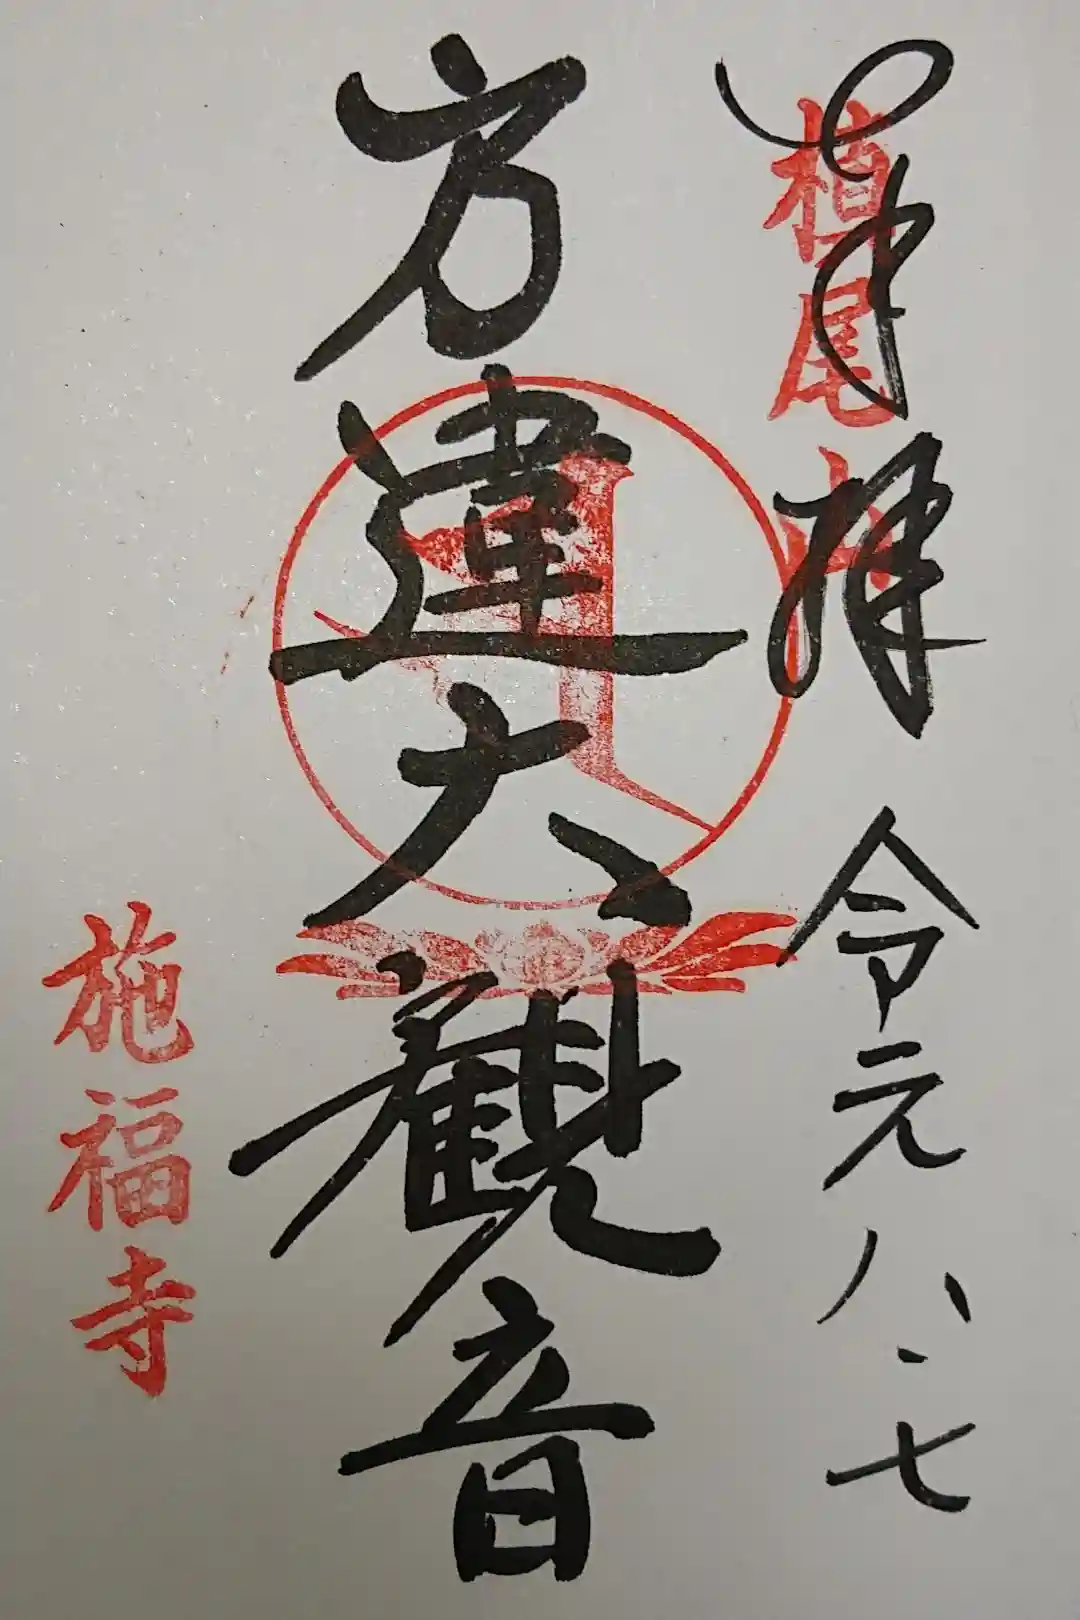 奉拝 令元八、七
槙尾山
方違大観音
施福寺